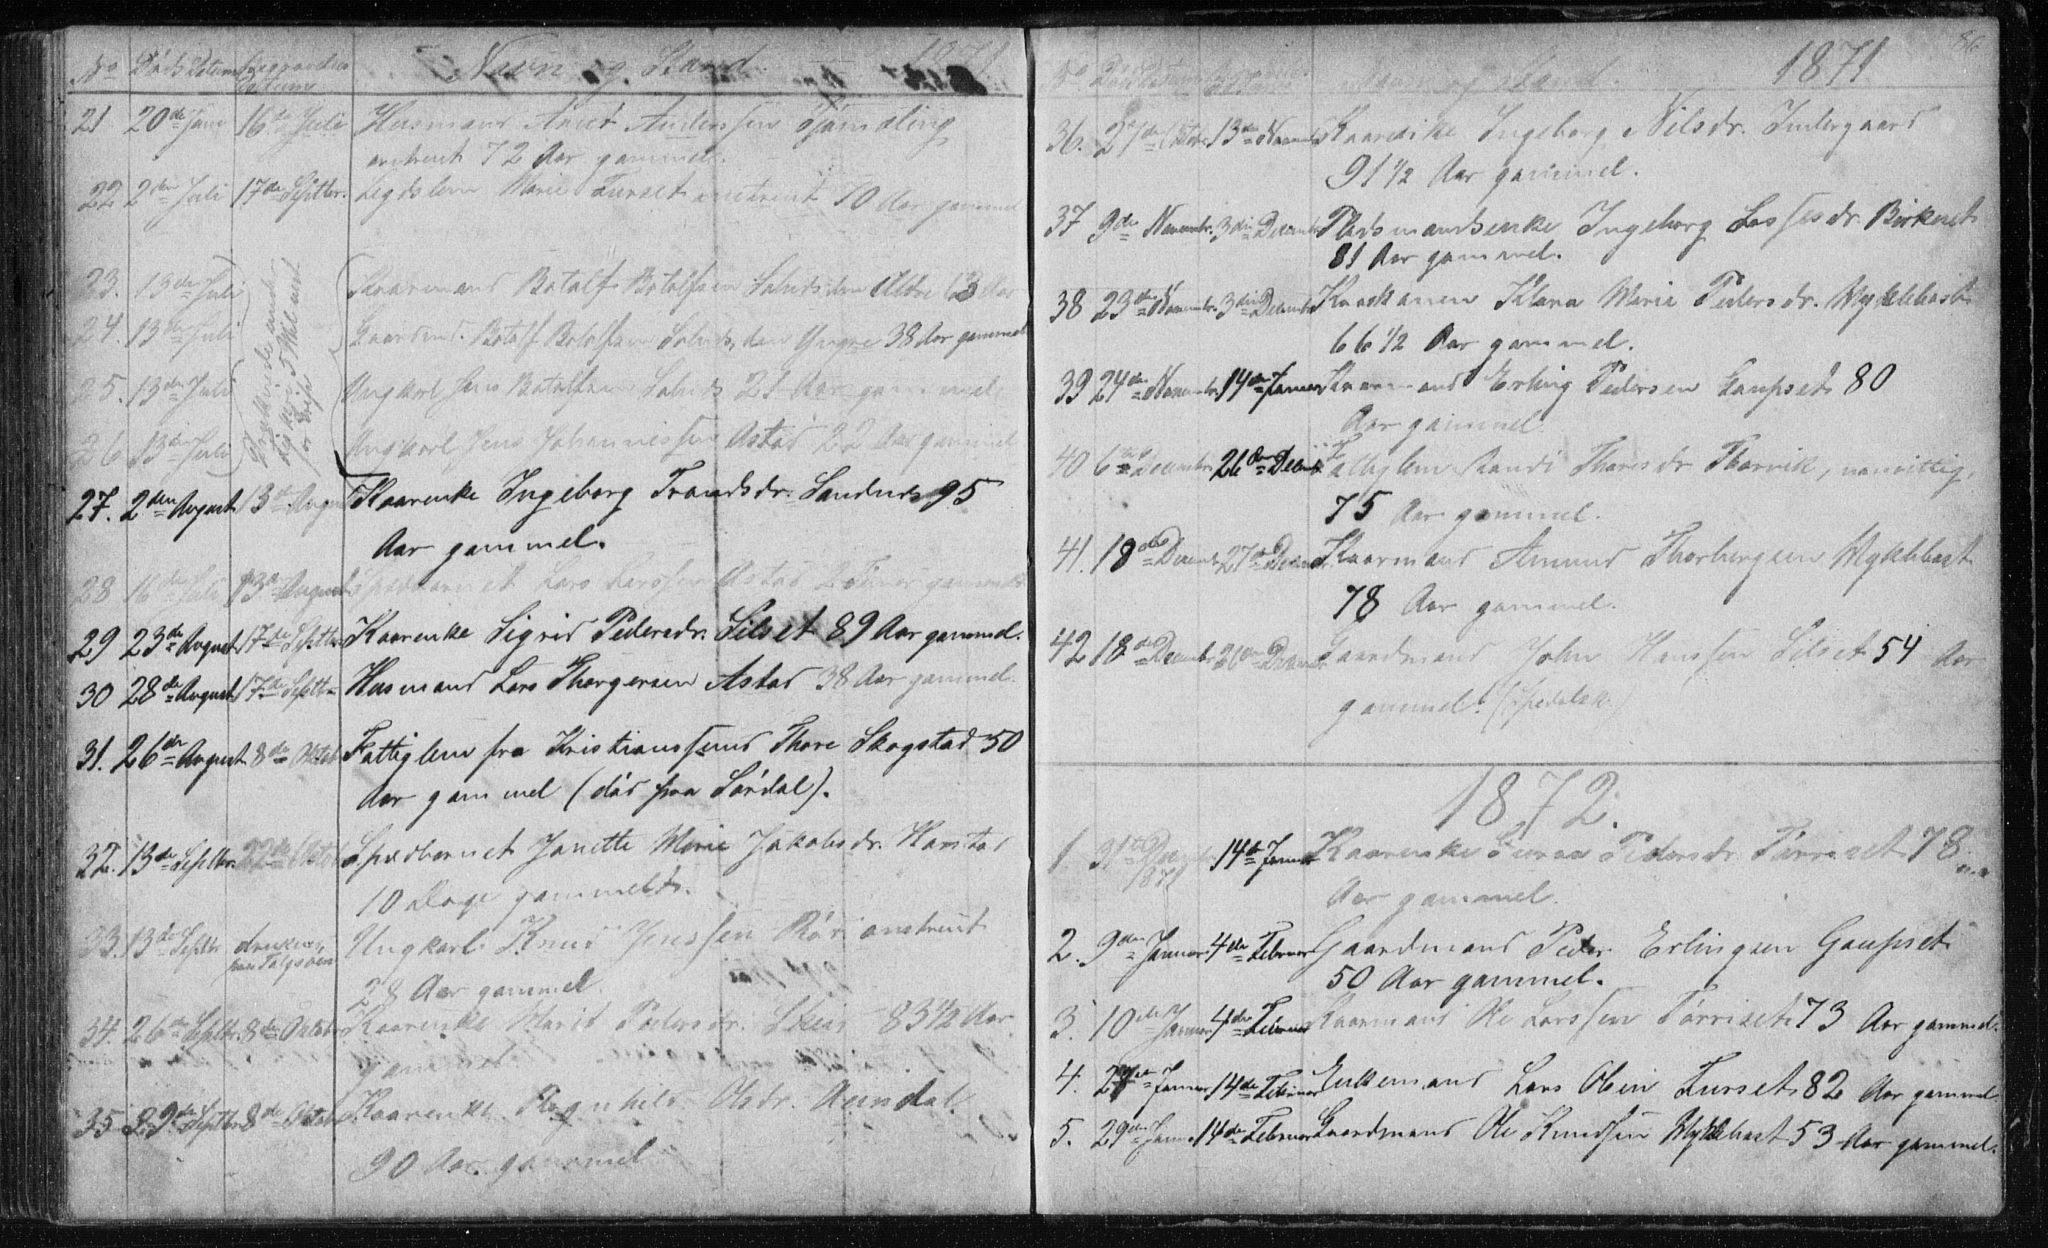 No Døds Datum Begravelses Datum Navn og Stand. 1871
21 20de Juni 16de Juli Husmand Anders Anderssen
omtrent 72 Aar gammel.
22 2den Juli 17de Septbr. Legdslem Marie Furset omtrent 10 Aar gammel
23. 13de Juli Kaarmand Botolf Botolfsen den Ældre 63 Aar
24. 13de Juli Gaardmd. Botolf Botolfsen den Yngre 38 Aar gammel
25. 13de Juli Ungkarl Jens Botolfsen 21 Aar gammel
26 13de Juli Ungkarl Jens Johannessen Astad 22 Aar gammel
27. 2den August 13de August Kaarenke Ingeborg Trondsdr. Sandnes 95
Aar gammel.
28 16de Juli 13de August Spædbarnet Lars Larssen Astad 2 Timer gammelt
29 23de August 17de Septbr. Kaarenke Sigrid Pedersdr. Silset 89 Aar gammel.
30 28de August 17de Septbr. Husmand Lars Thorgersen Astad 38 Aar gammel.
31. 26de August 8de Octob. Fattiglem fra Kristianssund Thore Skogstad 50
Aar gammel (død paa Sørdal).
32. 13de Septbr. 22de Octob. Spædbarnet Janette Marie Jakobsdr. Harstad
10 Dage gammelt.
33. 13de Septbr. druknet, paa Ungkarl Knud Jenssen Rød omtrent
28 Aar gammel.
34. 26de Septbr. 8de Octob. Kaarenke Marit Pedersdr. 83½ Aar
gammel.
35 29de Septbr. 8de Octob. Kaarenke Ragnhild Olsdr. Aundal.
90 Aar gammel
86
No Døds Datum Navn og Stand. 1871
36. 27de Octob. 13de Novembr. Ingeborg Nilsdr. Indergaard
91½ Aar gammel.
37 9de Novembr. 3die Decembr. Pladsmandsenke Ingeborg Lassesdr. Birkeset
81 Aar gammel.
38 23de Novembr. 3die Decembr. Klara Marie Pedersdr. Myklebost
66½ Aar gammel.
39 24de Novembr. 14de Januar Kaarmand Erling Pedersen Gaupset 80
Aar gammel.
40 6te Decembr. 26de Decembr. Fattiglem Randi Thoresdr. Thorvik, vanvittig,
75 Aar gammel.
41. 18de Decembr. 27de Decembr. Kaarmand Amund Thorbergsen Myklebost
78 Aar gammel.
42 18de Decembr. 26de Decembr. Gaardmand John Hanssen Silset 54 Aar
gammel. (Spedalsk.)
1872.
1. 31te Decembr. 1871 14de Januar Kaarenke Pedersdr. Tørriset 78
Aar gammel.
2. 9de Januar 4de Februar Gaardmand Peder Erlingsen Gaupset
50 Aar gammel.
3. 10de Januar 4de Februar Kaarmand Ole Larssen Tørriset 73 Aar gammel.
4. 27de Januar 14de Februar Enkemand Lars Olsen Furset 82 Aar gammel
5. 29de Januar 14de Februar Gaardmand Ole Knudsen Myklebost 53 Aar gammel.